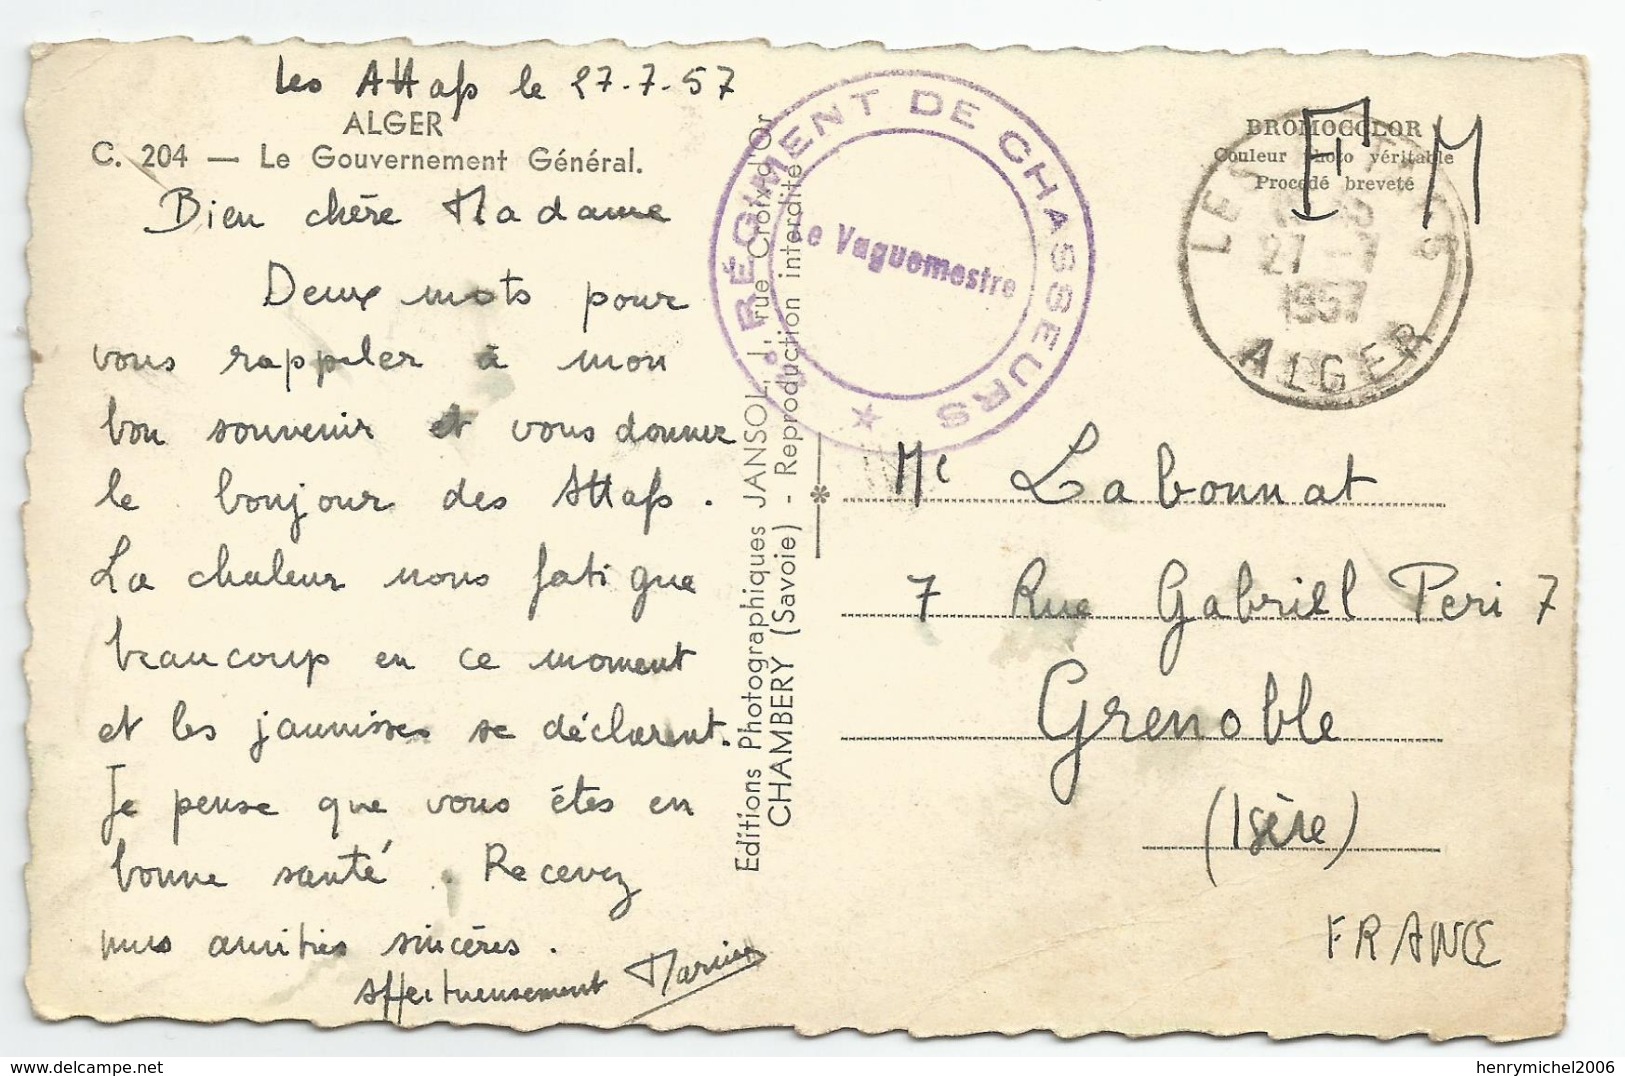 Les Attafs le 27-7-57
ALGER
C. 204 — Le Gouvernement Général.
Bien chère Madame
Deux mots pour
vous rappeler à mon
bon souvenir et vous donner
le bonjour des Attafs.
La chaleur nous fatigue
beaucoup en ce moment
et les jaunisses se déclarent.
Je pense que vous êtes en
bonne santé. Recevez
mes amitiés sincères.
Affectueusement
Editions Photographiques JANSOL, 1, rue Croix d'Or
CHAMBERY (Savoie) - Reproduction interdite
RÉGIMENT DE CHASSEURS
Le Vaguemestre
BROMOCOLOR
Couleur photo véritable
Procédé breveté
F M
27-7
1957
ALGER
Me Labonnat
7 Rue Gabriel Peri 7
Grenoble
(Isère)
FRANCE
henrymichel2006